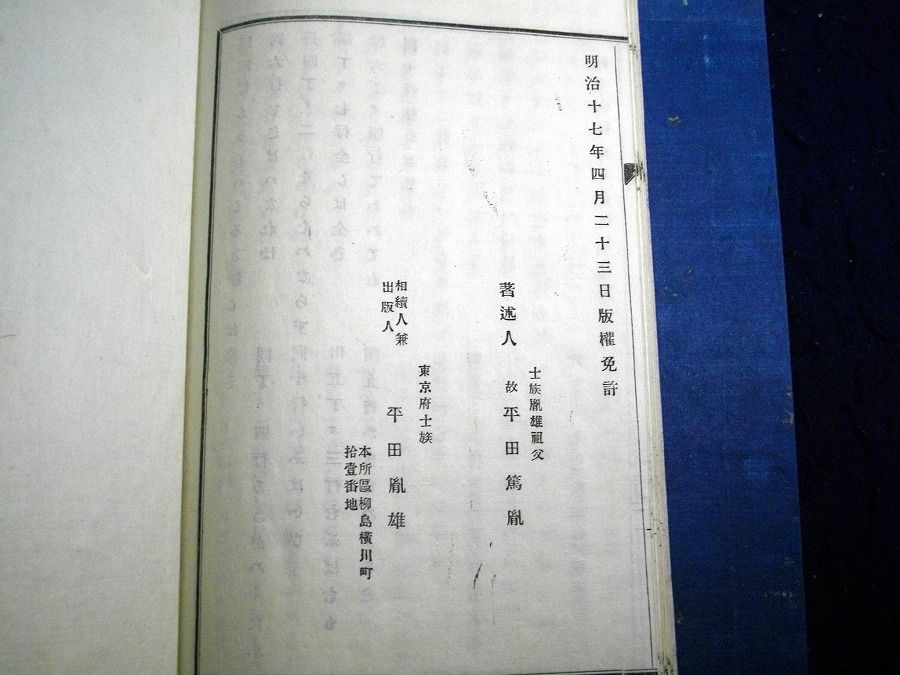 明治十七年四月二十三日版權免許
著述人
士族胤雄祖父
故 平田篤胤
相續人兼
出版人
東京府士族
平田胤雄
本所區柳島横川町
拾壹番地